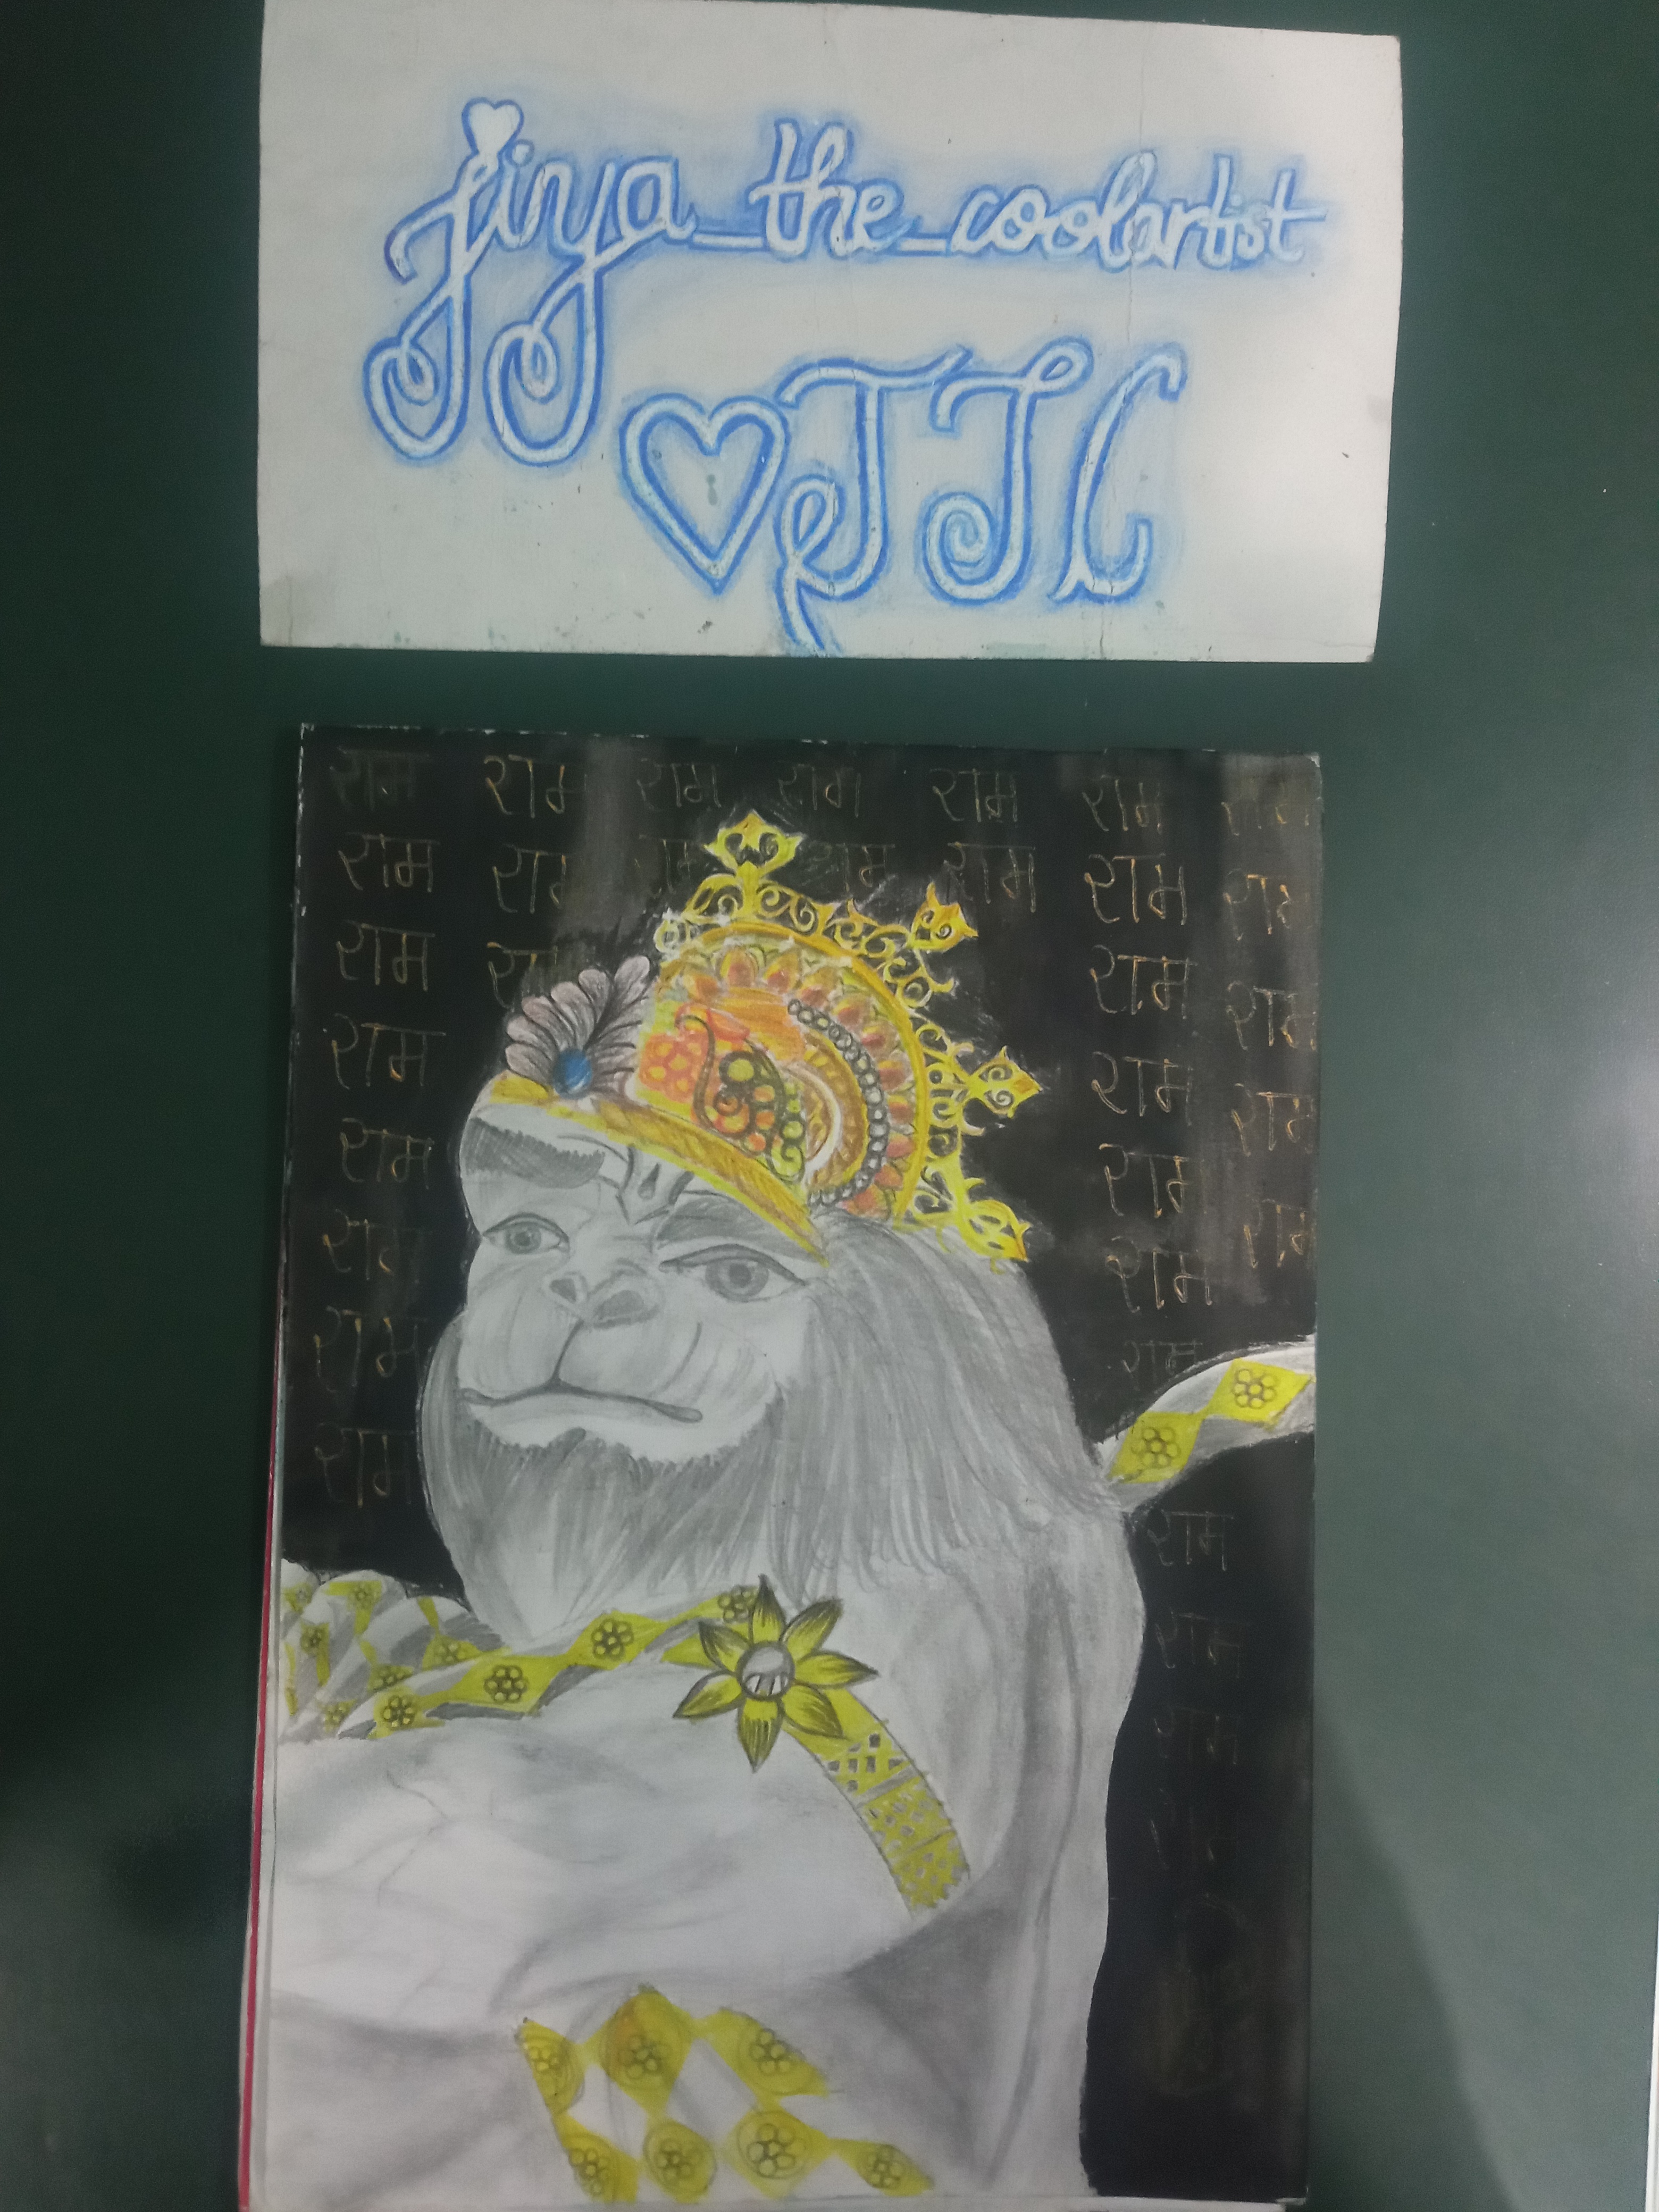 Jiya_the_coolartist
राम राम राम राम राम राम राम
राम राम राम राम राम राम राम
राम राम राम
राम राम राम
राम राम राम
राम राम
राम राम
राम
राम
राम
राम